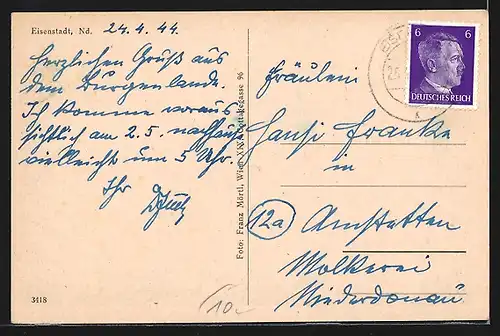 Eisenstadt, Nd. 24.4.44
Herzlichen Gruß aus
dem Burgenlande.
Ich komme voraus
sichtlich am 2.5. nachhause
vielleicht um 5 Uhr.
Ihr
Foto: Franz Mörtl, Wien XIX, 96
3418
10.-
6 6
DEUTSCHES REICH
Fräulein
Hansi Franke
in
12a
Amstetten
Molkerei
Niederdonau